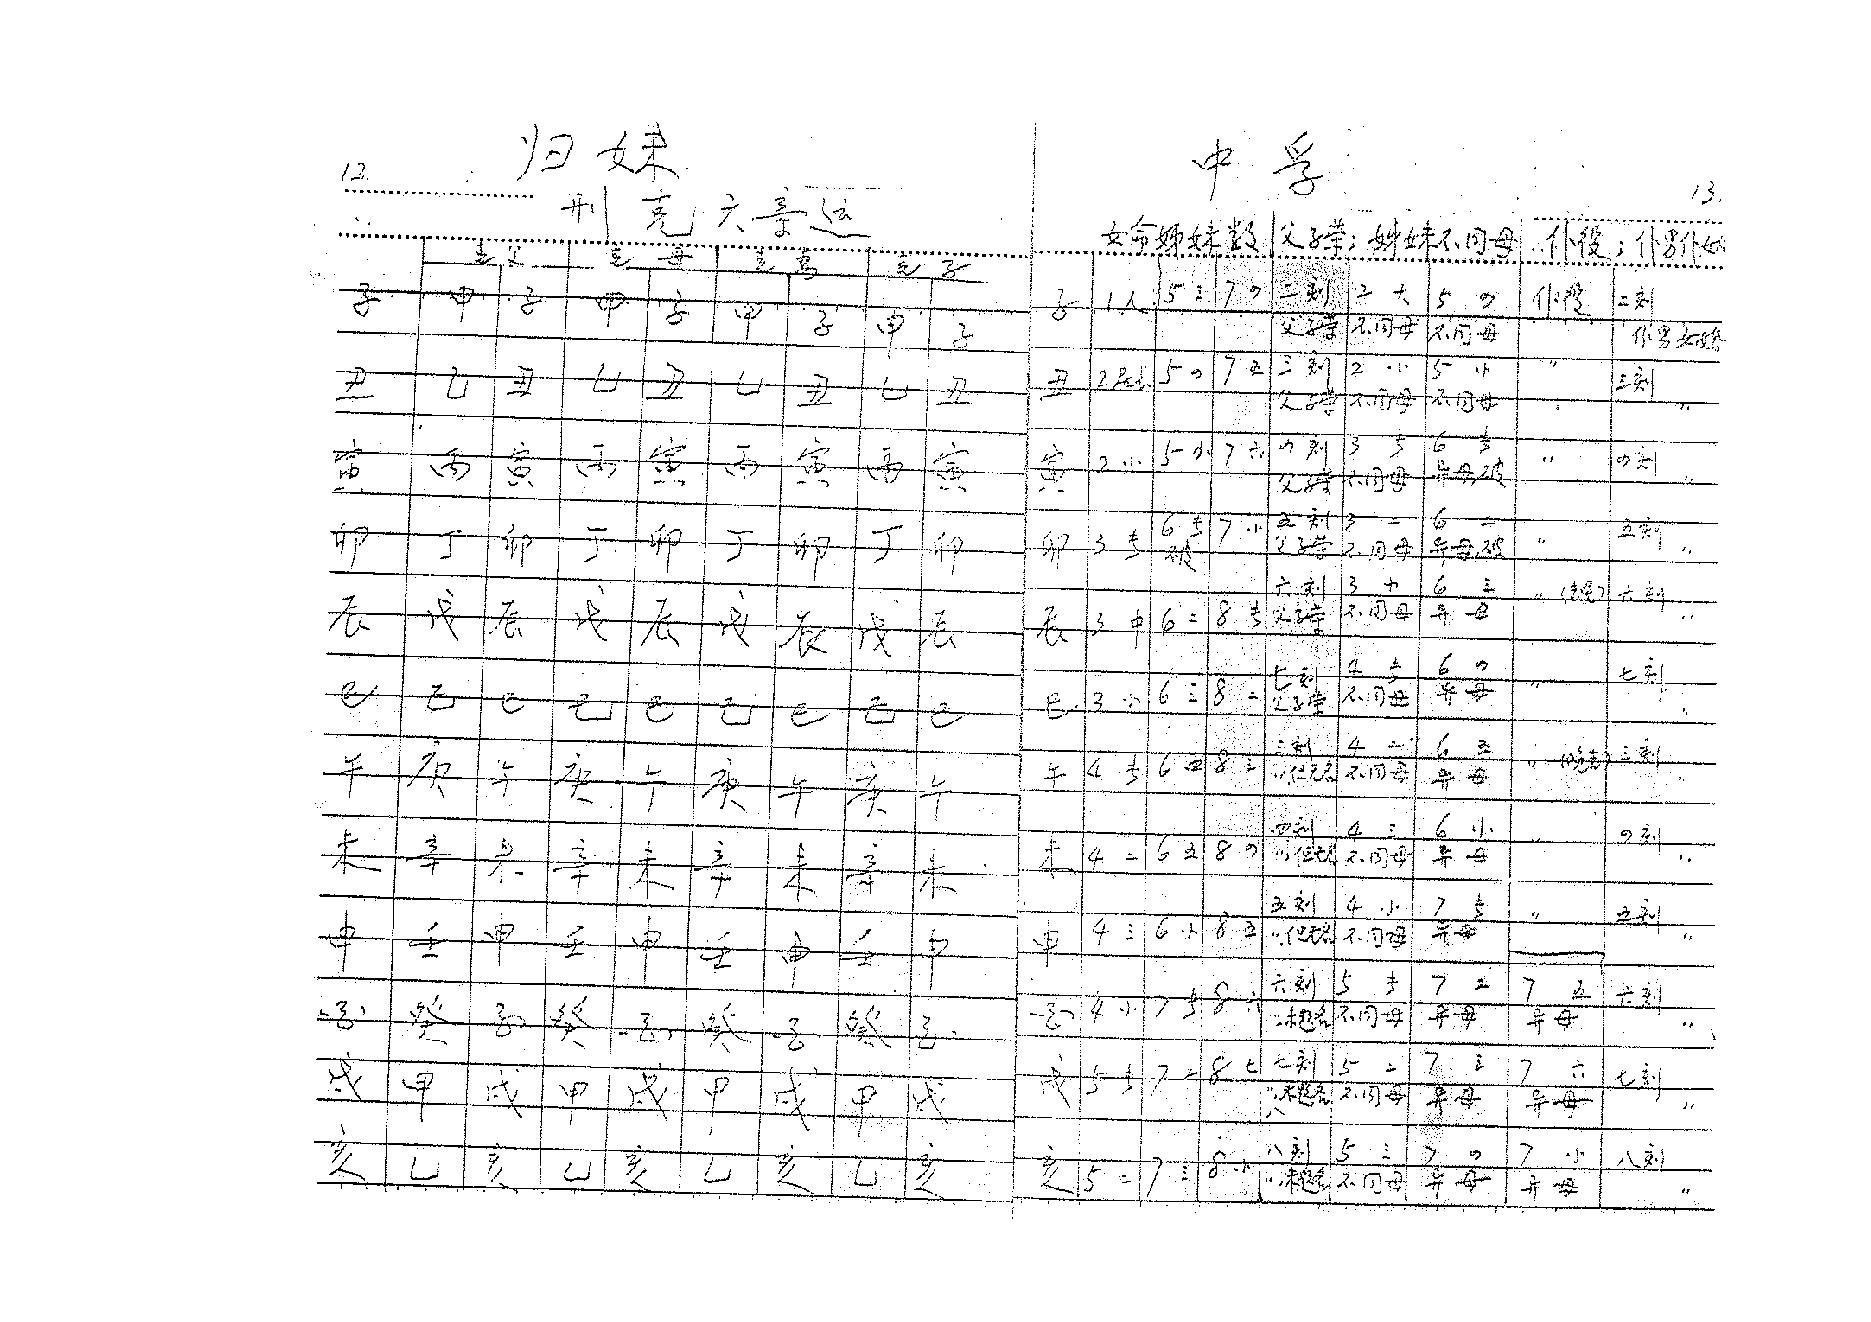 12.
归妹
刑克六亲运
克父 克母 克妻 克子
子 甲 子 甲 子 甲 子 甲 子
丑 乙 丑 乙 丑 乙 丑 乙 丑
寅 丙 寅 丙 寅 丙 寅 丙 寅
卯 丁 卯 丁 卯 丁 卯 丁 卯
辰 戊 辰 戊 辰 戊 辰 戊 辰
巳 己 巳 己 巳 己 巳 己 巳
午 庚 午 庚 午 庚 午 庚 午
未 辛 未 辛 未 辛 未 辛 未
申 壬 申 壬 申 壬 申 壬 申
酉 癸 酉 癸 酉 癸 酉 癸 酉
戌 甲 戌 甲 戌 甲 戌 甲 戌
亥 乙 亥 乙 亥 乙 亥 乙 亥
中孚
13.
女命姊妹数 父子荣; 姊妹不同母 仆役;
子 1人 5三 7の 二刻 2大 5の 仆役 二刻
父子荣 不同母 不同母
丑 2 5の 7五 三刻 2小 5小 〃 三刻
父子荣 不同母 不同母 〃
寅 2小 5小 7六 の刻 3长 6长 〃 の刻
父子荣 不同母 异母破 〃
卯 3长 6长破 7小 五刻 3二 6二 〃 五刻
父子荣 不同母 异母破 〃
辰 3中 6二 8长 六刻 3中 6三 〃 六刻
父子荣 不同母 异母 〃
巳 3小 6三 8二 七刻 4长 6の 〃 七刻
父子荣 不同母 异母
午 4长 6四 8三 三刻 4二 6五 〃 三刻
不同母 异母
未 4二 6五 8の 四刻 4三 6小 〃 の刻
不同母 异母 〃
申 4三 6小 8五 五刻 4小 7长 〃 五刻
不同母 异母 〃
酉 4小 7长 8六 六刻 5长 7二 7五 六刻
不同母 异母 异母 〃
戌 5长 7二 8七 七刻 5二 7三 7六 七刻
不同母 异母 异母 〃
亥 5二 7三 8小 八刻 5三 7の 7小 八刻
不同母 异母 异母 〃